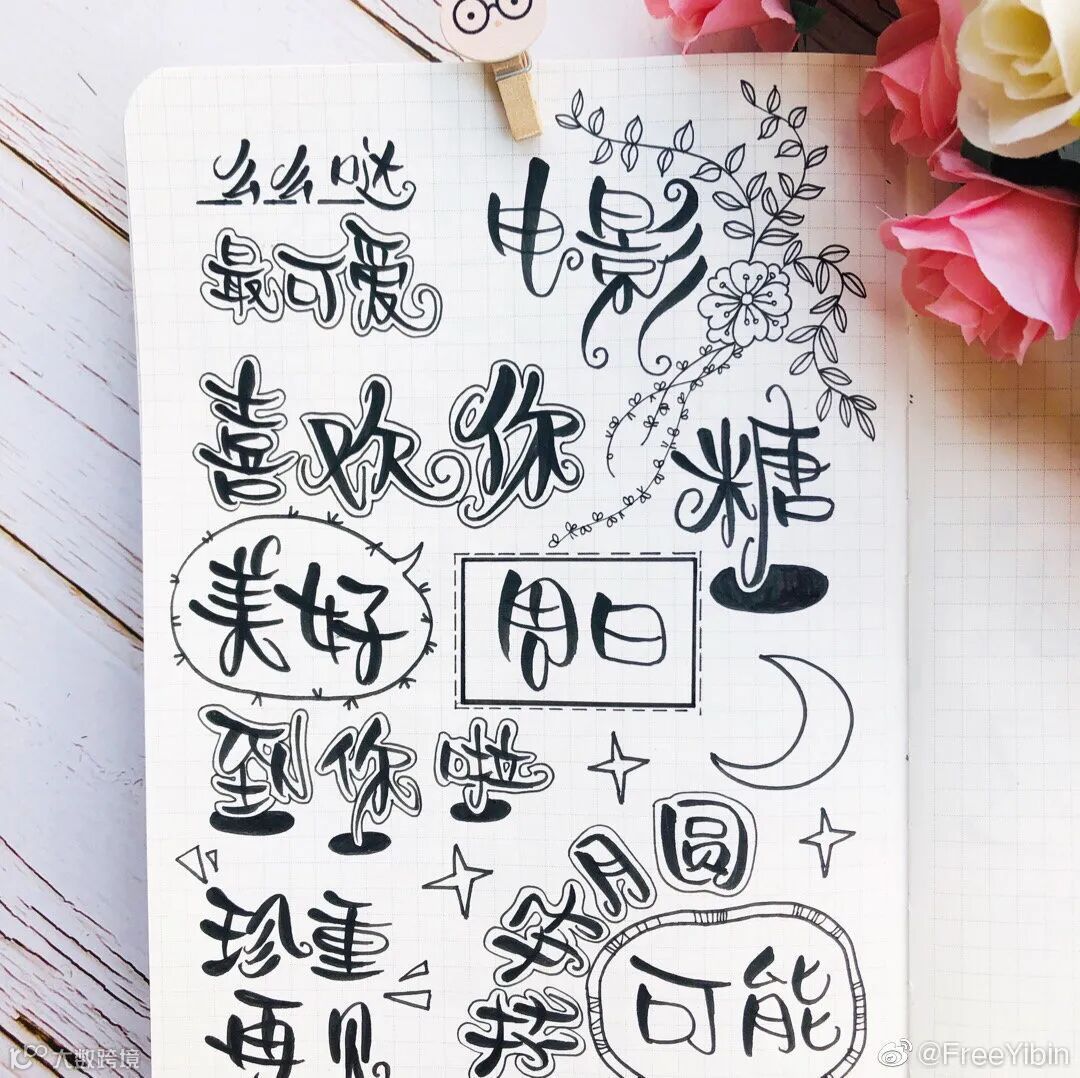 么么哒
最可爱
电影
喜欢你
糖
美好
周日
到你啦
月圆
珍重
再见
可能
大数跨境
@FreeYibin